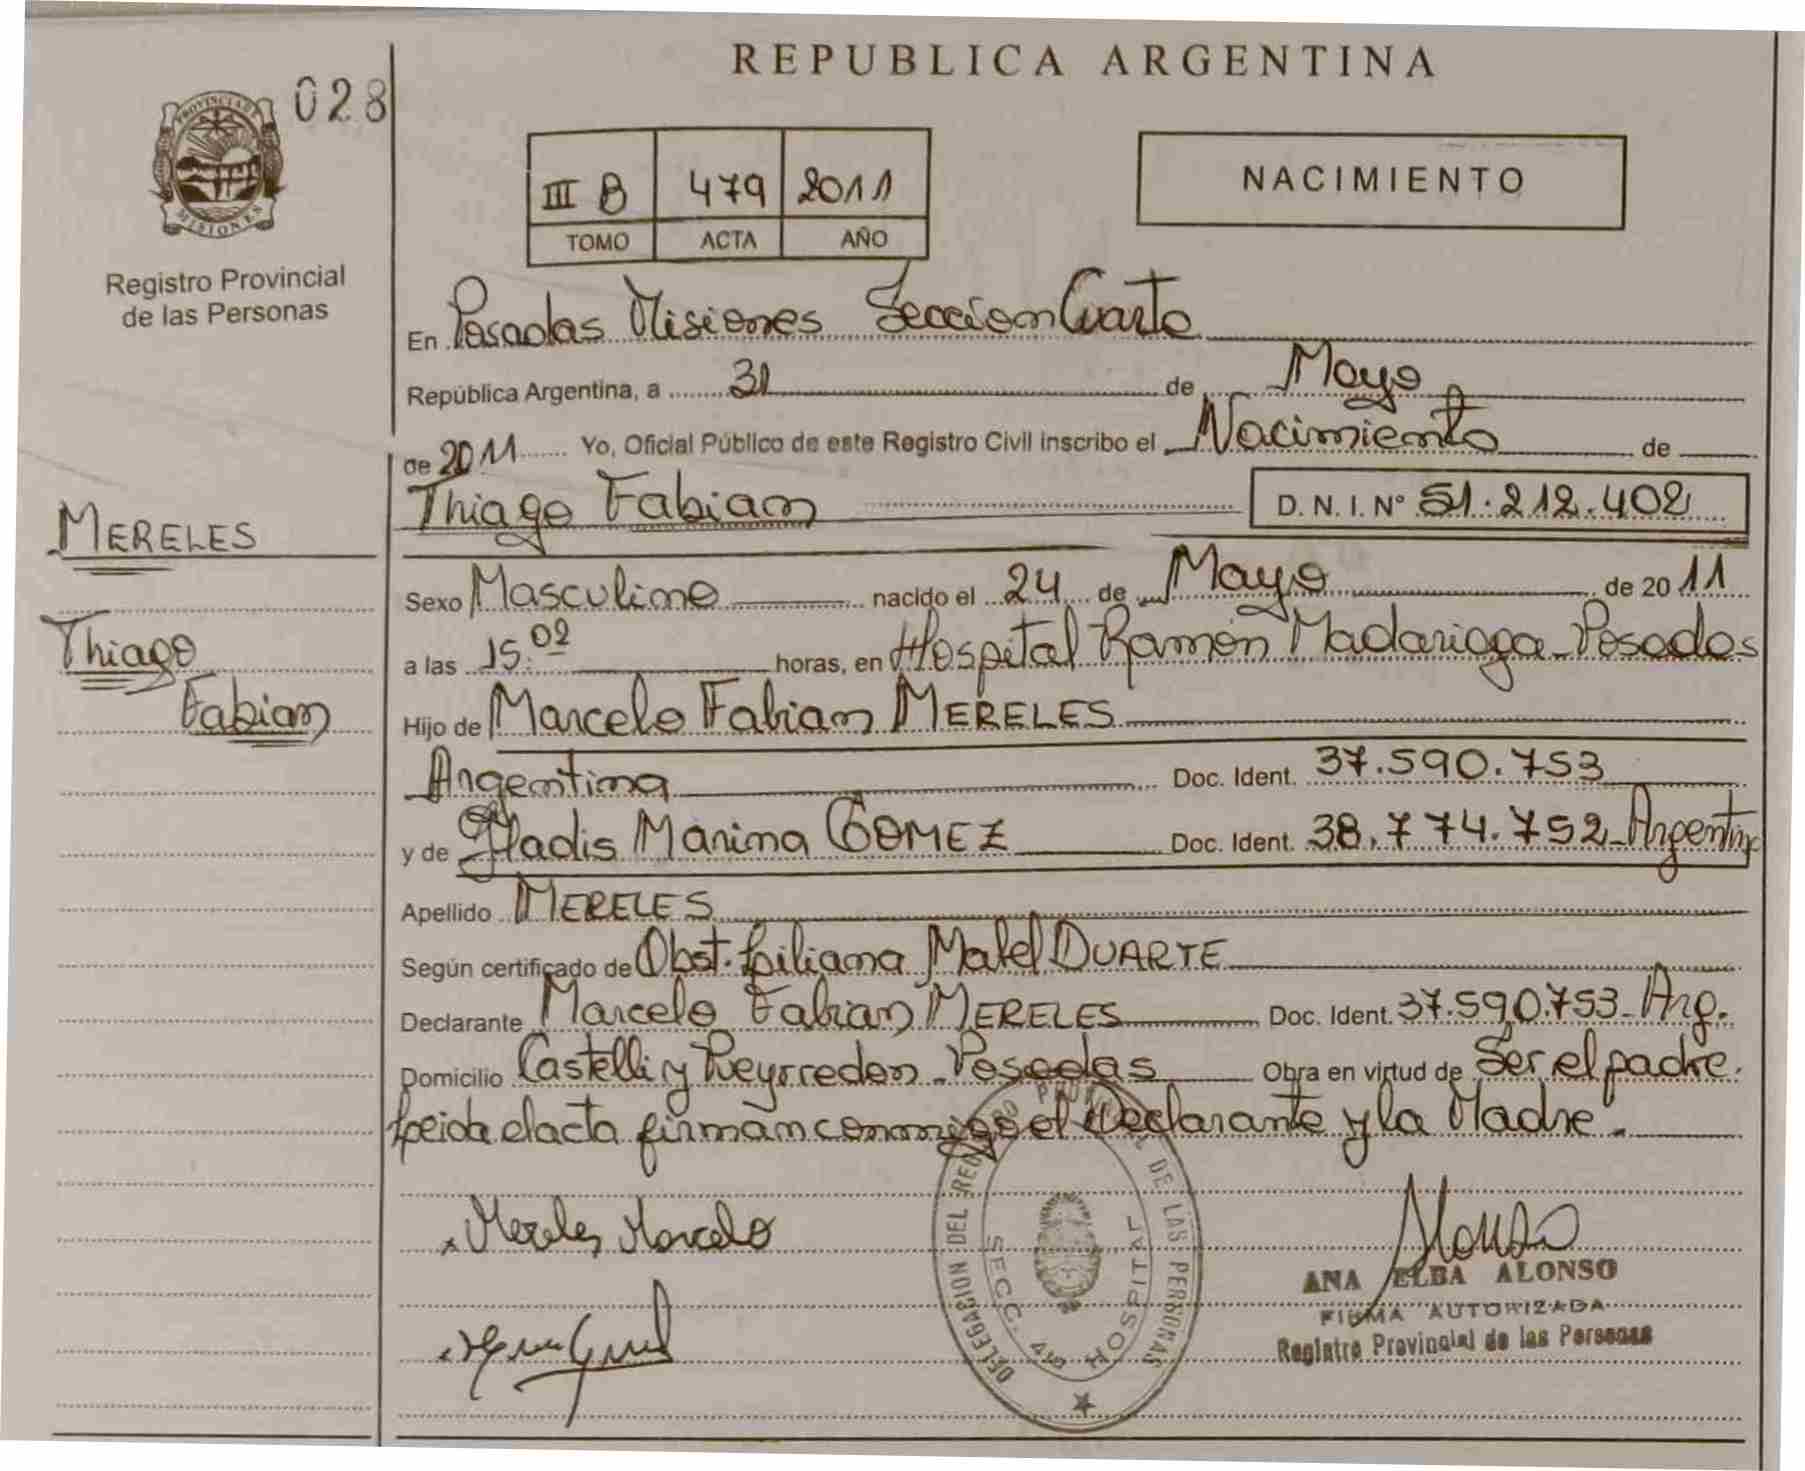 REPUBLICA ARGENTINA
028
PROVINCIA DE MISIONES
Registro Provincial
de las Personas
III B 479 2011
TOMO ACTA AÑO
NACIMIENTO
En Posadas Misiones Seccion Cuarta
República Argentina, a 31 de Mayo
de 2011 Yo, Oficial Público de este Registro Civil inscribo el Nacimiento de
Thiago Fabian D. N. I. N° 51.212.402
MERELES
Thiago
Fabian
Sexo Masculino nacido el 24 de Mayo de 2011
a las 15:02 horas, en Hospital Ramón Madariaga - Posadas
Hijo de Marcelo Fabian MERELES
Argentina Doc. Ident. 37.590.753
y de Gladis Marina GOMEZ Doc. Ident. 38.774.752 - Argentina
Apellido MERELES
Según certificado de Obst. Liliana Mabel DUARTE
Declarante Marcelo Fabian MERELES Doc. Ident. 37.590.753 - Arg.
Domicilio Castelli y Pueyrredon - Posadas Obra en virtud de Ser el padre.
Leida el acta firman conmigo el Declarante y la Madre.
Mereles Marcelo
DELEGACION DEL REGISTRO PROVINCIAL DE LAS PERSONAS
SECC. 4ta HOSPITAL
Alonso
ANA ELBA ALONSO
FIRMA AUTORIZADA
Registro Provincial de las Personas